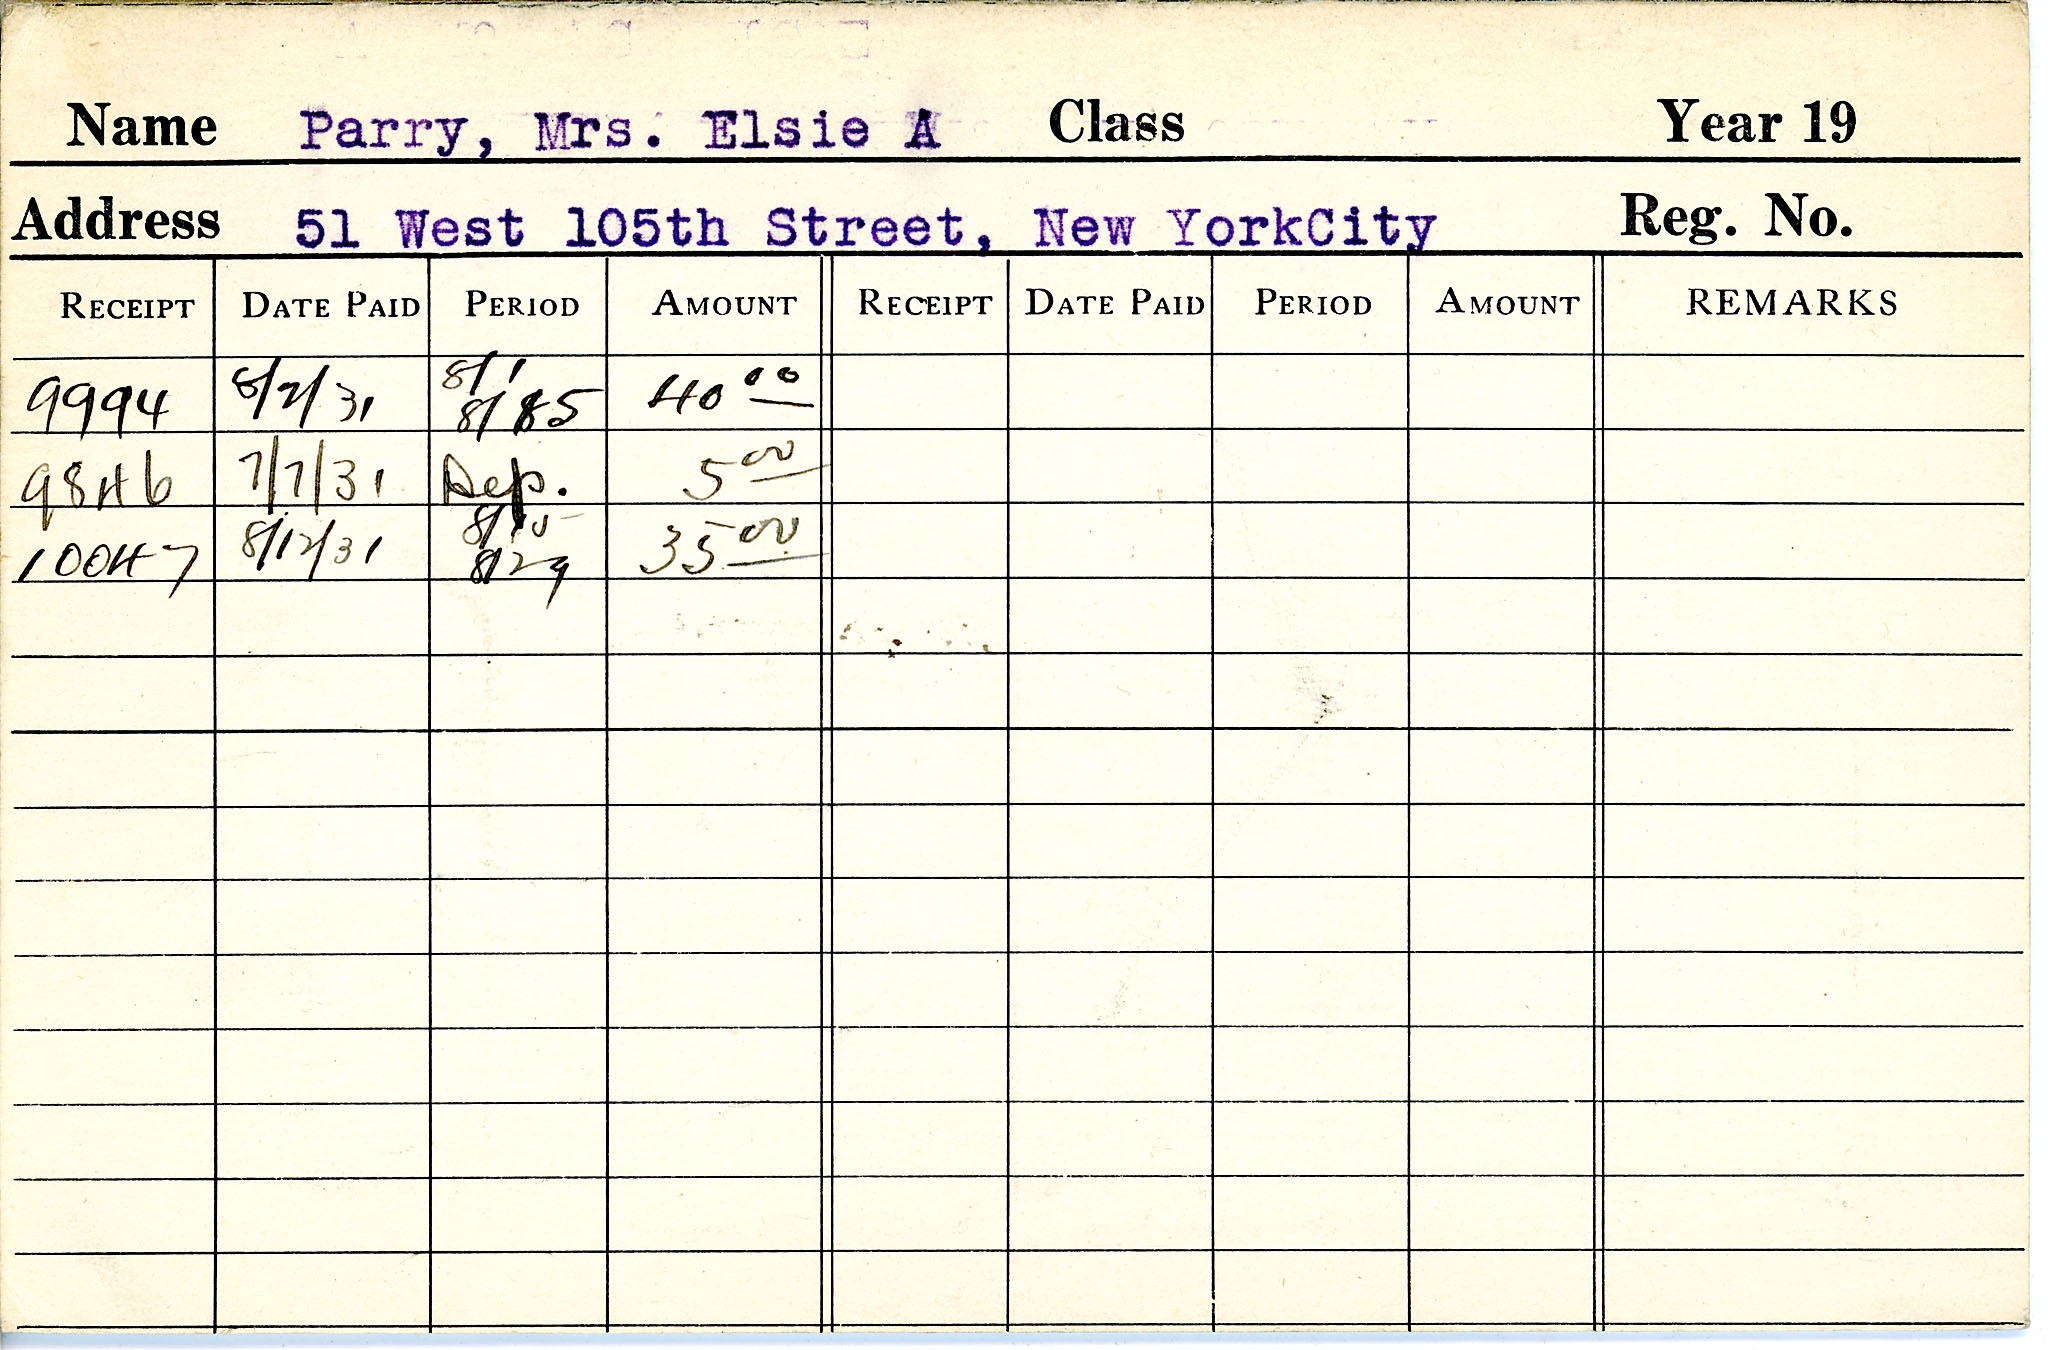 Name Parry, Mrs. Elsie A Class Year 19
Address 51 West 105th Street, New YorkCity Reg. No.
RECEIPT DATE PAID PERIOD AMOUNT RECEIPT DATE PAID PERIOD AMOUNT REMARKS
8/1
9994 8/2/31 8/15 40 00
9846 7/7/31 Dep. 5 00
8/15
10047 8/12/31 8/29 35 00